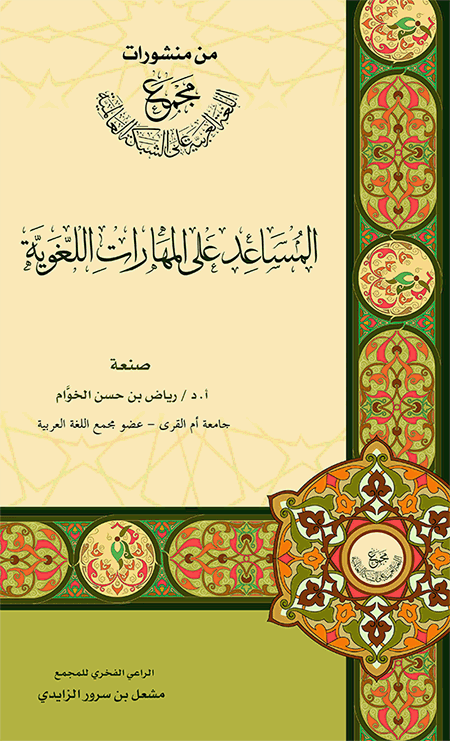 من منشورات
مجمع
اللغة العربية على الشبكة العالمية
المُسَاعِد عَلى المهَارَاتِ اللّغَويَّة
صنعة
أ.د/ رياض بن حسن الخوَّام
جامعة أم القرى - عضو مجمع اللغة العربية
مجمع
الراعي الفخري للمجمع
مشعل بن سرور الزايدي